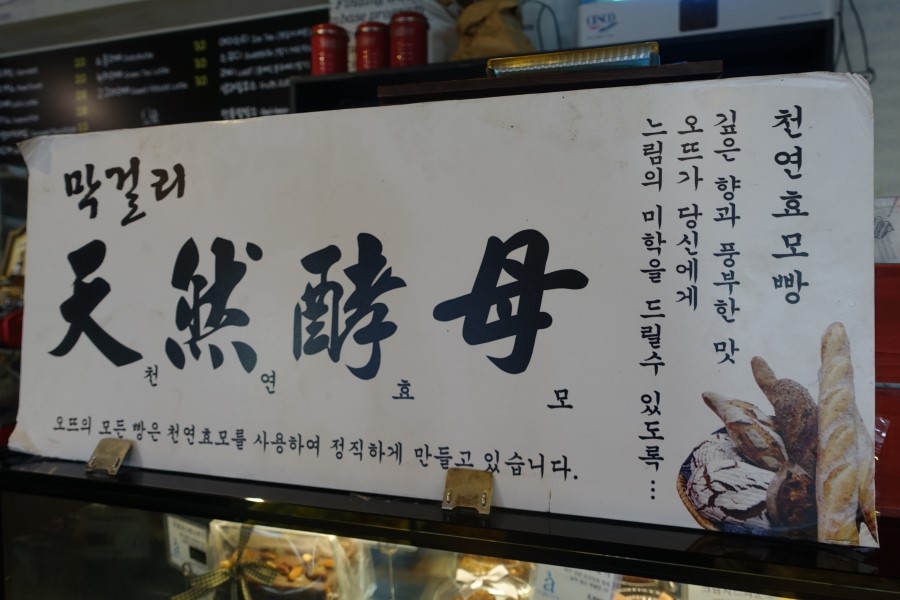 막걸리
天然酵母
천 연 효 모
오뜨의 모든 빵은 천연효모를 사용하여 정직하게 만들고 있습니다.
천연효모빵
깊은 향과 풍부한 맛
오뜨가 당신에게
느림의 미학을 드릴수 있도록...